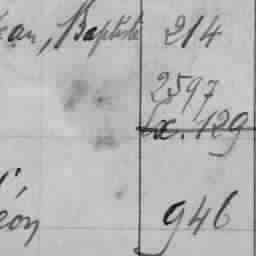 ean, Baptiste 214
2597
x. 129
éon 946